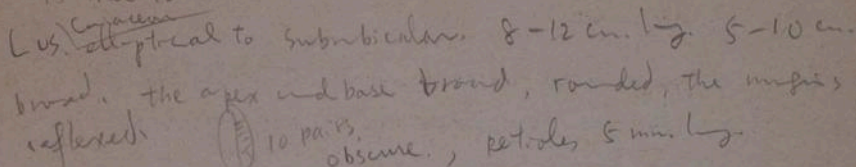 Lvs. Coriaceous
elliptical to suborbicular. 8-12 cm. lg. 5-10 cm.
broad. the apex and base broad, rounded, the margins
reflexed. 10 pairs,
obscure., petioles 5 mm. lg.